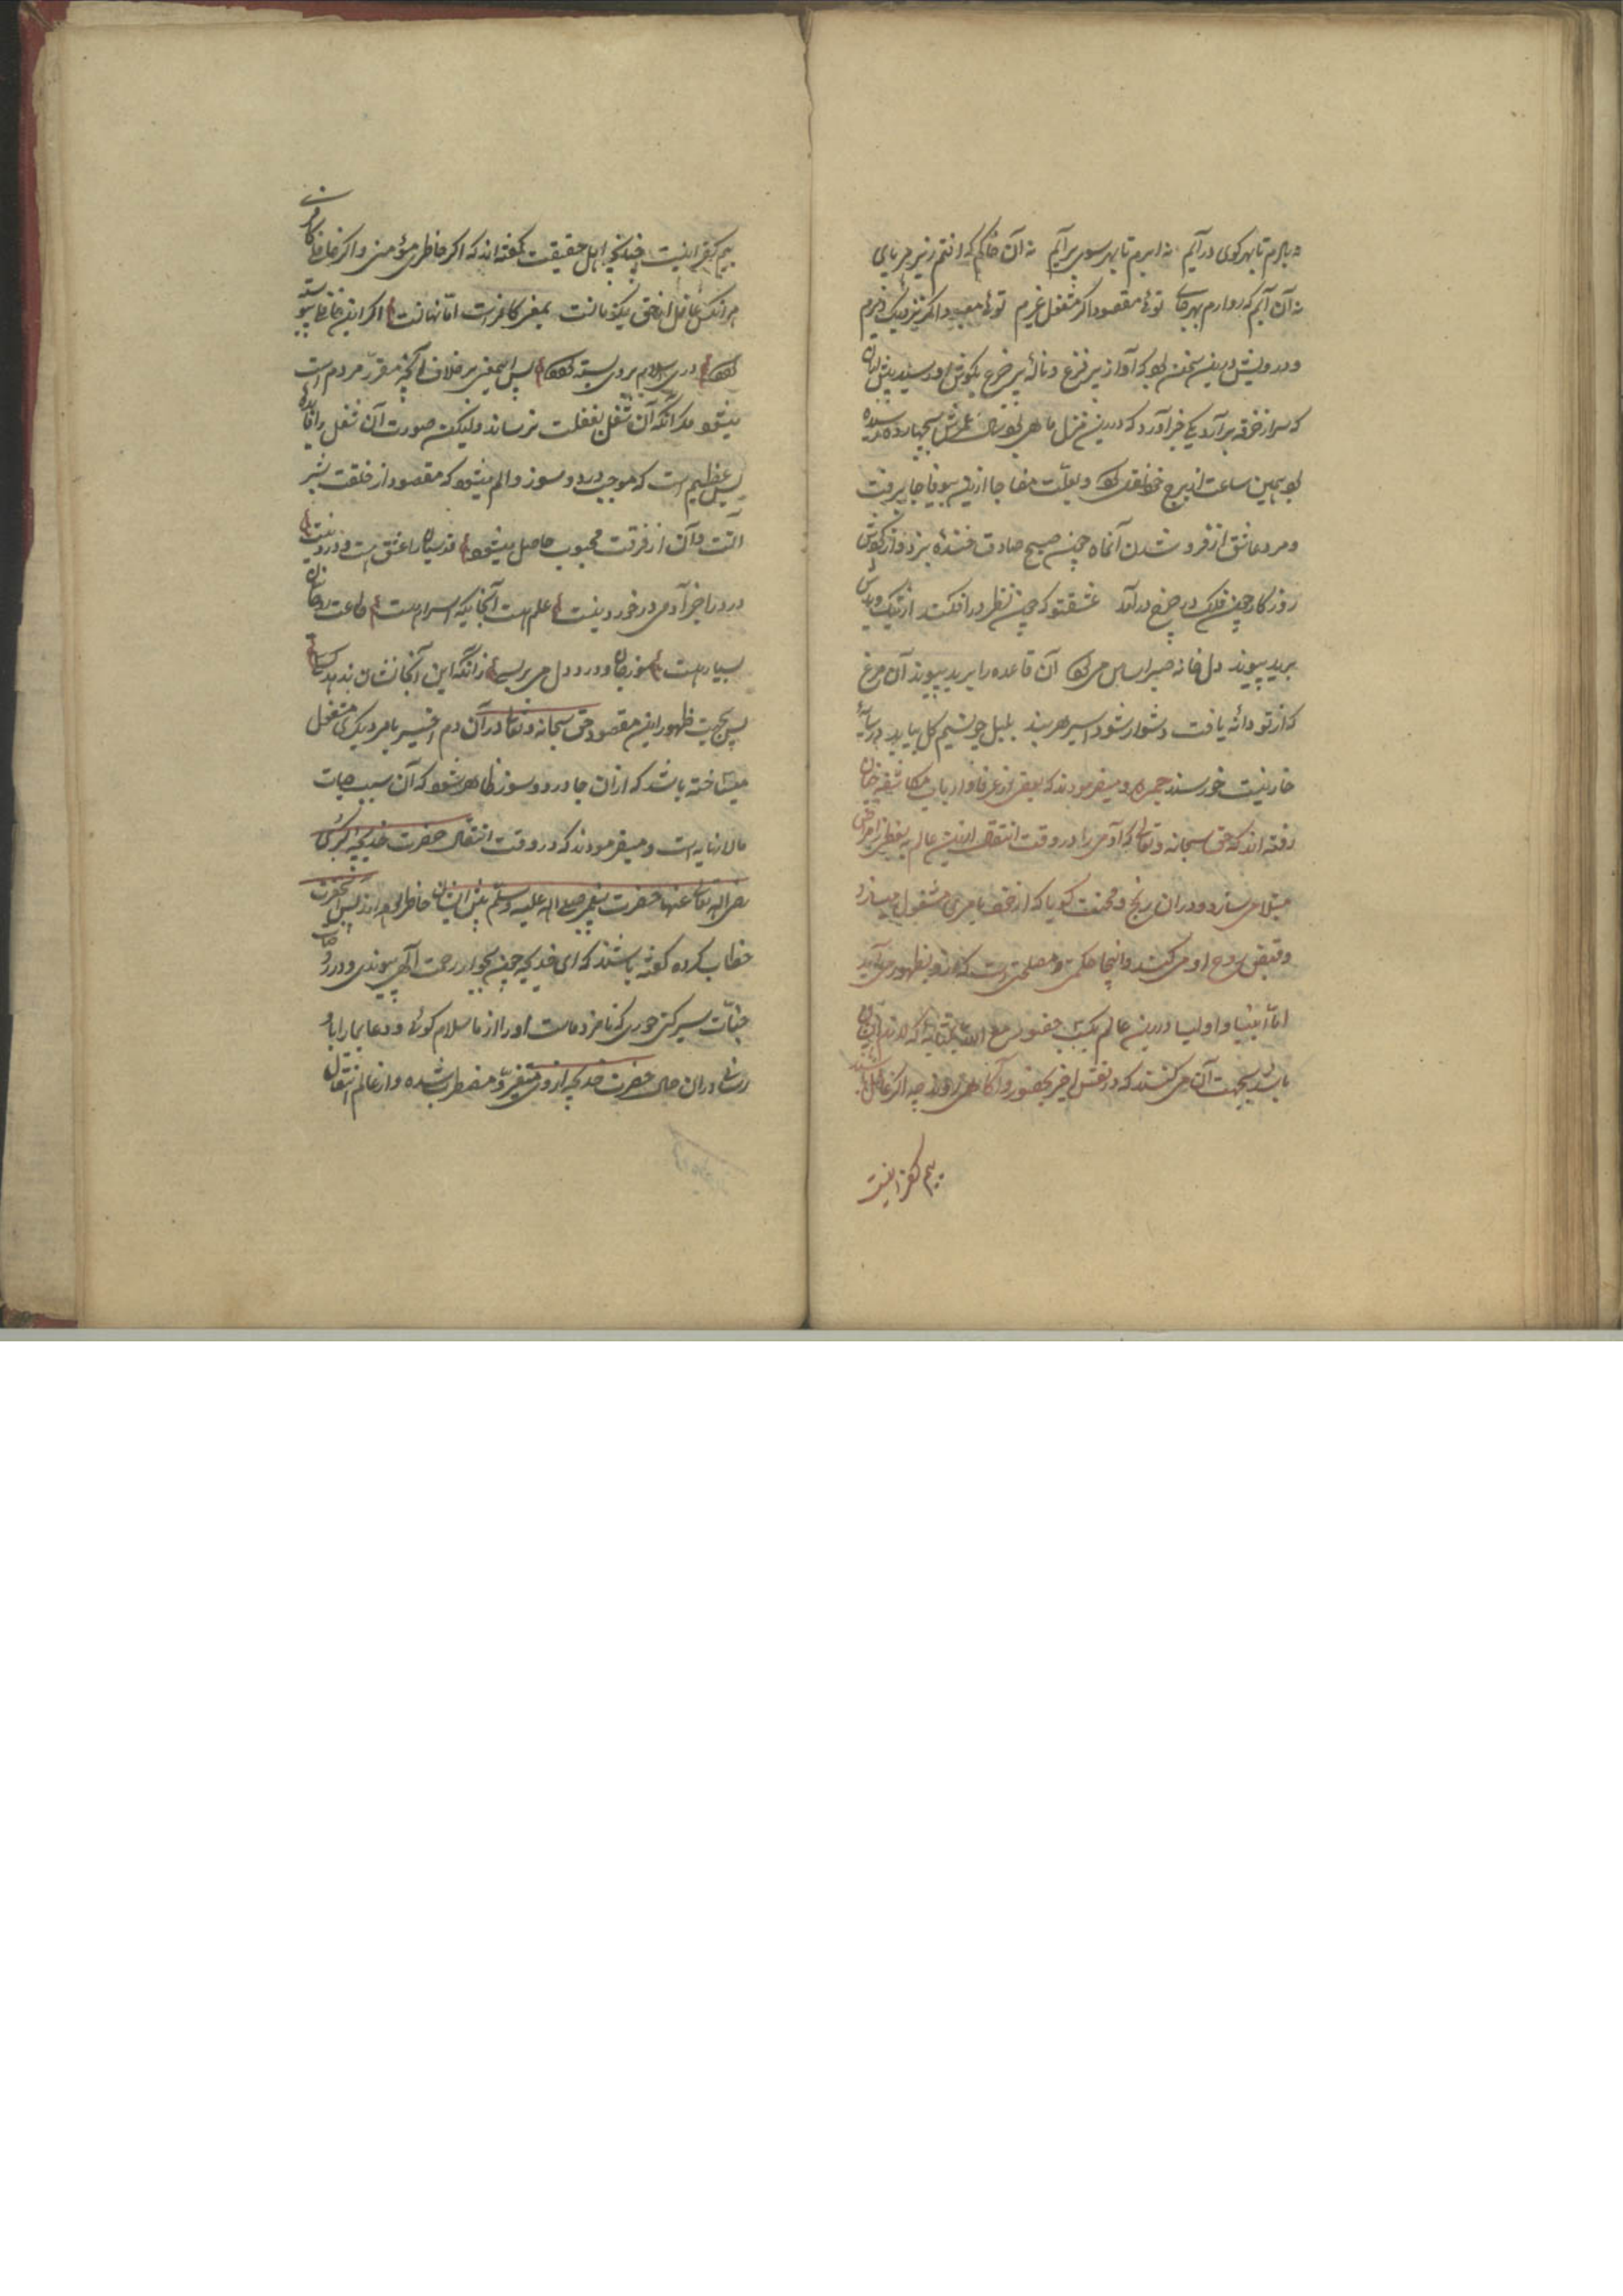 نه بادم تا بهر کوی در آیم نه ابرم تا بهر سوی بر آیم نه آن خاکم که افتم زیر هر پای
نه آن آبم که رو آرم بهر جای توئی مقصود اگر مشغول غیرم توئی معبود اگر نزدیک دیرم
و درویش درین سخن بود که آواز پر فزع و نالهٔ پر جزع بگوش او رسید
که سر از خرقه بر آرد یکی خبر آورد که درین منزل ماهی بود که بچهارده نرسیده
بود همین ساعت از برج خود نقل کرد و بعلت مفاجا ازین سو فاجا برفت
و مرد عاشق از فرو شدن آنماه چون صبح صادق خنده بزد و از گردش
روزگار چون فلک در چرخ در آمد عشقتو که چون نظر در افکند از نیک و بدش
برید پیوند دل خانه صبر را اساس می کرد آن قاعده را برید پیوند آن مرغ
که از تو دانه یافت دشوار شود اسیر هر بند بلبل چو نسیم گل بیابد در سایهٔ
خار نیست خورسند جمره و میفرمودند که بعضی از عرفا و ارباب مکاشفه چنان
رفته اند که حق سبحانه و تعالی آدمی را در وقت انتقال ازین عالم به بعضی از امراض
مبتلا می سازد و در آن رنج و محنت گویا که از خود بامری مشغول میسازد
و قبض روح او می کند و اینجا حکمتی و مصلحتی است که از و بظهور می آید
اما انبیا و اولیا درین عالم کسب حضور مع الله
باشد بجهت آن می کنند که در نفس اخیر بحضور و آگاهی روند چه اگر غافل باشند
بیم کفر اینست
بیم کفر اینست چنانچه اهل حقیقت گفته اند که اگر حاضری مؤمنی و اگر غافلی کافری
هر آنکس غافل از حق یکزمانست بمعنی کافر است اما نهانست اگر این غافلی پیوسته
بودی در اسلام بر وی بسته بودی پس اینمعنی بر خلاف آنچه مقرر مردم است
میشود مگر آنکه آن شغل بغفلت نرساند و لیکن صورت آن شغل را فایدهٔ
بس عظیم است که موجب درد و سوز و الم میشود که مقصود از خلقت بشر
آنست و آن از فرقت محبوب حاصل میشود قدسیان را عشق هست و درد نیست
درد را جز آدمی در خورد نیست علم هست آنجا که اسرار هست طاعت روحانیان
بسیار هست سوز جان و درد دل می بر بسی زانکه این آنجا نشان ندهد کسی
پس بجهت ظهور این مقصود حق سبحانه و تعالی در آن دم اخیر بامر دیگری مشغول
میساخته باشد که از آن جا درد و سوز ظاهر شود که آن سبب حیات
مالانهایه است و میفرمودند که در وقت انتقال حضرت خدیجه الکبری
رضی الله تعالی عنها حضرت پیغمبر صلی الله علیه و سلم پیش ایشان حاضر بوده اند پس آنحضرت
خطاب کرده گفته باشند که ای خدیجه چون بجوار رحمت الهی پیوندی و در روضات
جنات سیر کنی حوری که نامزد ماست او را از ما سلام گوئی و دعا بما را باو
رسانی در آن حال حضرت خدیجه از روی تغیر مضطرب شده و از عالم انتقال